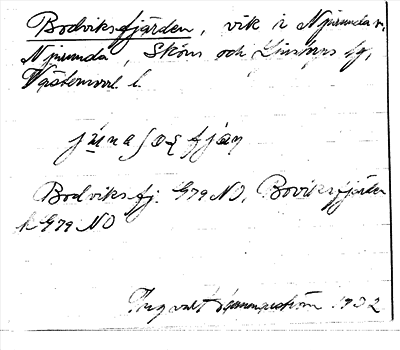 Bodviksfjärden, vik i Njurunda s.,
Njurunda, Sköns och Ljustorps tg,
Västernorrl. l.
Bodviksfj. G79 NO, Boviksfjärden
k G79 NO
Ingvald 1932